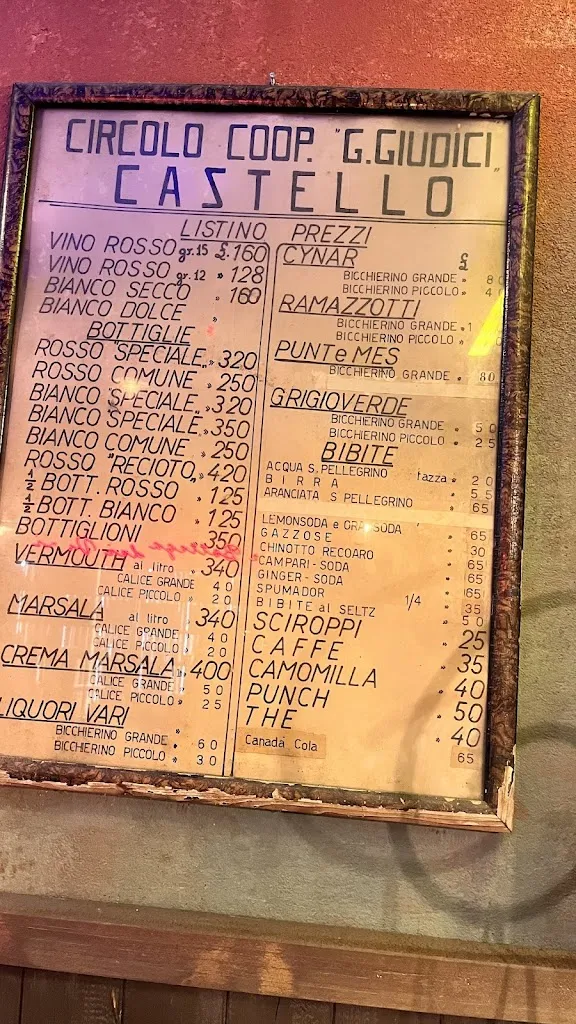 CIRCOLO COOP. "G.GIUDICI"
CASTELLO
LISTINO PREZZI
VINO ROSSO gr.15 £. 160
VINO ROSSO gr.12 " 128
BIANCO SECCO " 160
BIANCO DOLCE "
BOTTIGLIE
ROSSO "SPECIALE" " 320
ROSSO COMUNE " 250
BIANCO "SPECIALE" " 320
BIANCO SPECIALE " 350
BIANCO COMUNE " 250
ROSSO "RECIOTO" " 420
½ BOTT. ROSSO " 125
½ BOTT. BIANCO " 125
BOTTIGLIONI 350
VERMOUTH al litro " 340
CALICE GRANDE 40
CALICE PICCOLO " 20
MARSALA al litro " 340
CALICE GRANDE " 40
CALICE PICCOLO " 20
CREMA MARSALA " 400
CALICE GRANDE " 50
CALICE PICCOLO " 25
LIQUORI VARI "
BICCHIERINO GRANDE " 60
BICCHIERINO PICCOLO " 30
CYNAR £
BICCHIERINO GRANDE " 80
BICCHIERINO PICCOLO " 4
RAMAZZOTTI
BICCHIERINO GRANDE "
BICCHIERINO PICCOLO "
PUNT e MES
BICCHIERINO GRANDE " 80
GRIGIOVERDE
BICCHIERINO GRANDE " 50
BICCHIERINO PICCOLO " 25
BIBITE
ACQUA S. PELLEGRINO tazza " 20
BIRRA " 55
ARANCIATA S PELLEGRINO " 65
LEMONSODA e ORANSODA " 65
GAZZOSE " 30
CHINOTTO RECOARO " 65
CAMPARI - SODA " 65
GINGER - SODA " 65
SPUMADOR 1/4 " 35
BIBITE al SELTZ " 50
SCIROPPI " 25
CAFFE " 35
CAMOMILLA " 40
PUNCH " 50
THE " 40
Canada Cola 65